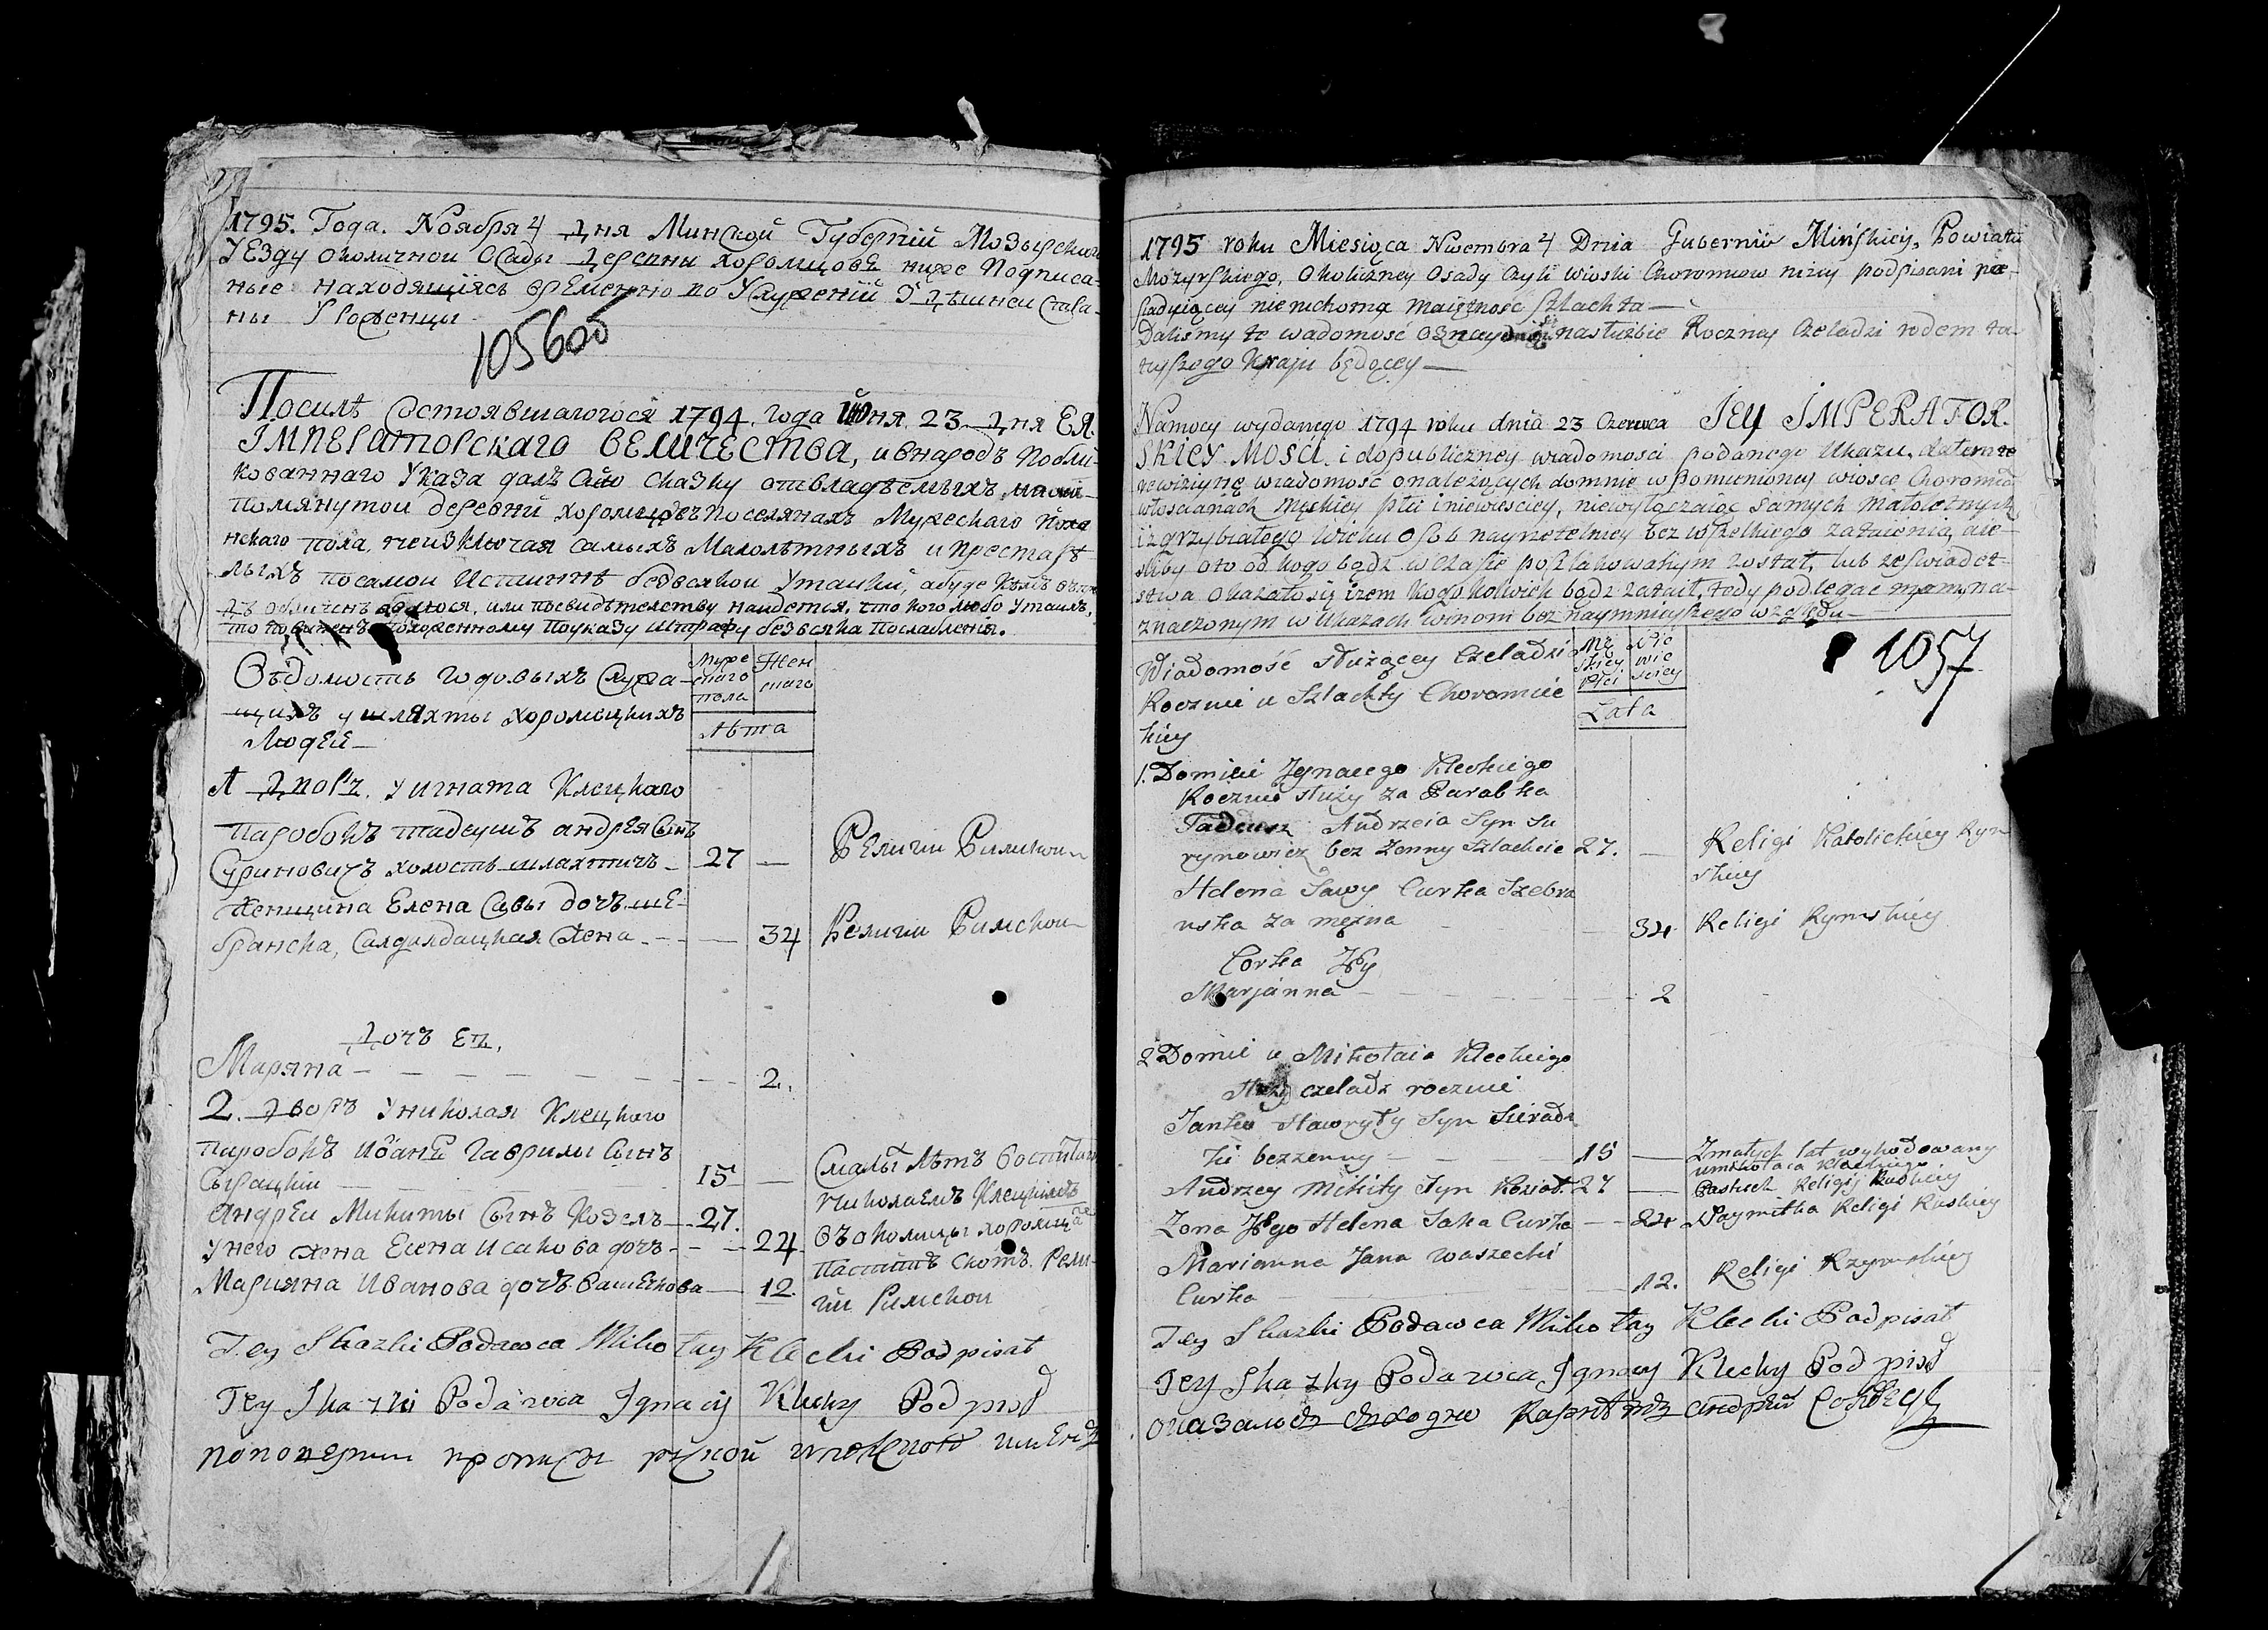 1795. Года. Ноября 4 дня Минской Губерній Мозырского
уезду околичной Осады деревни хоромцовъ ниже подписа-
ные находящіясь временно по Служеній здѣшней
ны уроженцы
105600
Посилѣ состоявшагогося 1794. года Июня 23. дня ЕЯ.
ІМПЕРАТОРСКАГО ВЕЛИЧЕСТВА, и внародъ Публи-
кованнаго Указа далъ Сию сказку отвладѣемыхъ мною
помянутой деревни хоромцовъ поселянахъ Мужескаго и же-
нскаго пола, неизключая самыхъ Малолѣтныхъ и престарѣ-
лыхъ по самои Истиннѣ безвсякои Утайки, абуде кѣмъ
обличенъ или посвидѣтелству наидется, что кого любо Утаилъ,
то повиненъ положенному поуказу штрафу безвсяка послабленія.
Вѣдомость годовыхъ Служа-
щихъ у шляхты хоромцкихъ
Людеи
Муже
скаго
пола
Жен
скаго
Лѣта
1 дворъ. у игната Клецкаго
паробокъ тадеушъ андрея сынъ
Суриновичъ холостъ шляхтичъ - 27 —
Религии Римской
женщина Елена Савы дочь ше-
бранска, Салдидацкая жена - - — 34
Религии Римской
дочъ ея,
Маряна — — — — 2.
2. дворъ у николая Клецкого
паробокъ иванъ гаврилы сынъ
Сырацкіи — 15 —
Смалы лѣтъ воспитан
николаемъ Клецкимъ
Андреи Микиты сынъ Козелъ — 27.
въ околицы хоромца
у него жена Елена Исакова дочъ - - — 24.
паститъ скотъ. Рели-
Марияна Иванова дочъ Вашеткова — 12.
гии Римской
Tey Skazki Podawca Mikołay Klecki Podpisał
Tey Skazki Podawca Ignacy Klecky Podpisał
1795 roku Miesiąca Nowembra 4 Dnia Gubernii Mińskiey, Powiatu
Mozyrskiego, Okoliczney Osady Czyli wioski Choromcow niżey podpisani po-
siadaiącey nieruchomą maiętność szlachta —
Daliśmy te wiadomość nasłużbie Roczney Czeladzi rodem tu-
tyszego Kraju będącey —
Namocy wydanego 1794 roku dnia 23 Czerwca JEY IMPERATOR-
SKIEY MOŚCI i dopubliczney wiadomości podanego Ukazu, daiem te
rewizyinę wiadomość onależących domnie w Pomienioney wiosce Choromcach
włościanach męskiey płci i niewieściey, niewyłączaiąc samych małoletnych
i zgrzybiałego wieku osob nayrzetelniey bez wszelkiego zataienia, ale-
śliby oto od kogo bądź w czasie poszlakowanym został, lub ze świadec-
stwa okazało się izem kogokolwiek bądź zataił, tedy podlegać mam, na-
znaczonym w Ukazach winom bez naymnieyszego względu —
Wiadomość służącey Czeladzi
Rocznie u Szlachty Choromiec
kiey
Mę
skiey
Płci
Nie
wie
sciey
Lata
1057
1. Domiei Jgnacego Kleckiego
Rocznie służy za Parobka
Tadeusz Andrzeia Syn Su
rynowicz bez Zenny Szlachcic 27. —
Religi Katolickiey Rym
skiey
Helena Sawy Curka Szebra
nska za męzna — 34.
Religi Rymskiey
Corka Jey
Marjanna — — — 2
2 Domie u Mikołaia Kleckiego
służy czeladz rocznie
Janko Hawryły Syn Sieradz
ki bezzenny — 15 —
Zmałych lat wyhodowany
umikołaia Kleckiego
Andrzey Mikity Syn Kozioł. 27 —
Pastuch Religij Ruskiey
Zona Jego Helena Saka Curka — - 24
Naymitka Religi Ruskiey
Marianna Jana Waszecki
Curka — 12.
Religi Rzymskiey
Tey Skazki Podawca Mikołay Klecki Podpisał
Tey Skazky Podawca Jgnacy Klecky Podpisał